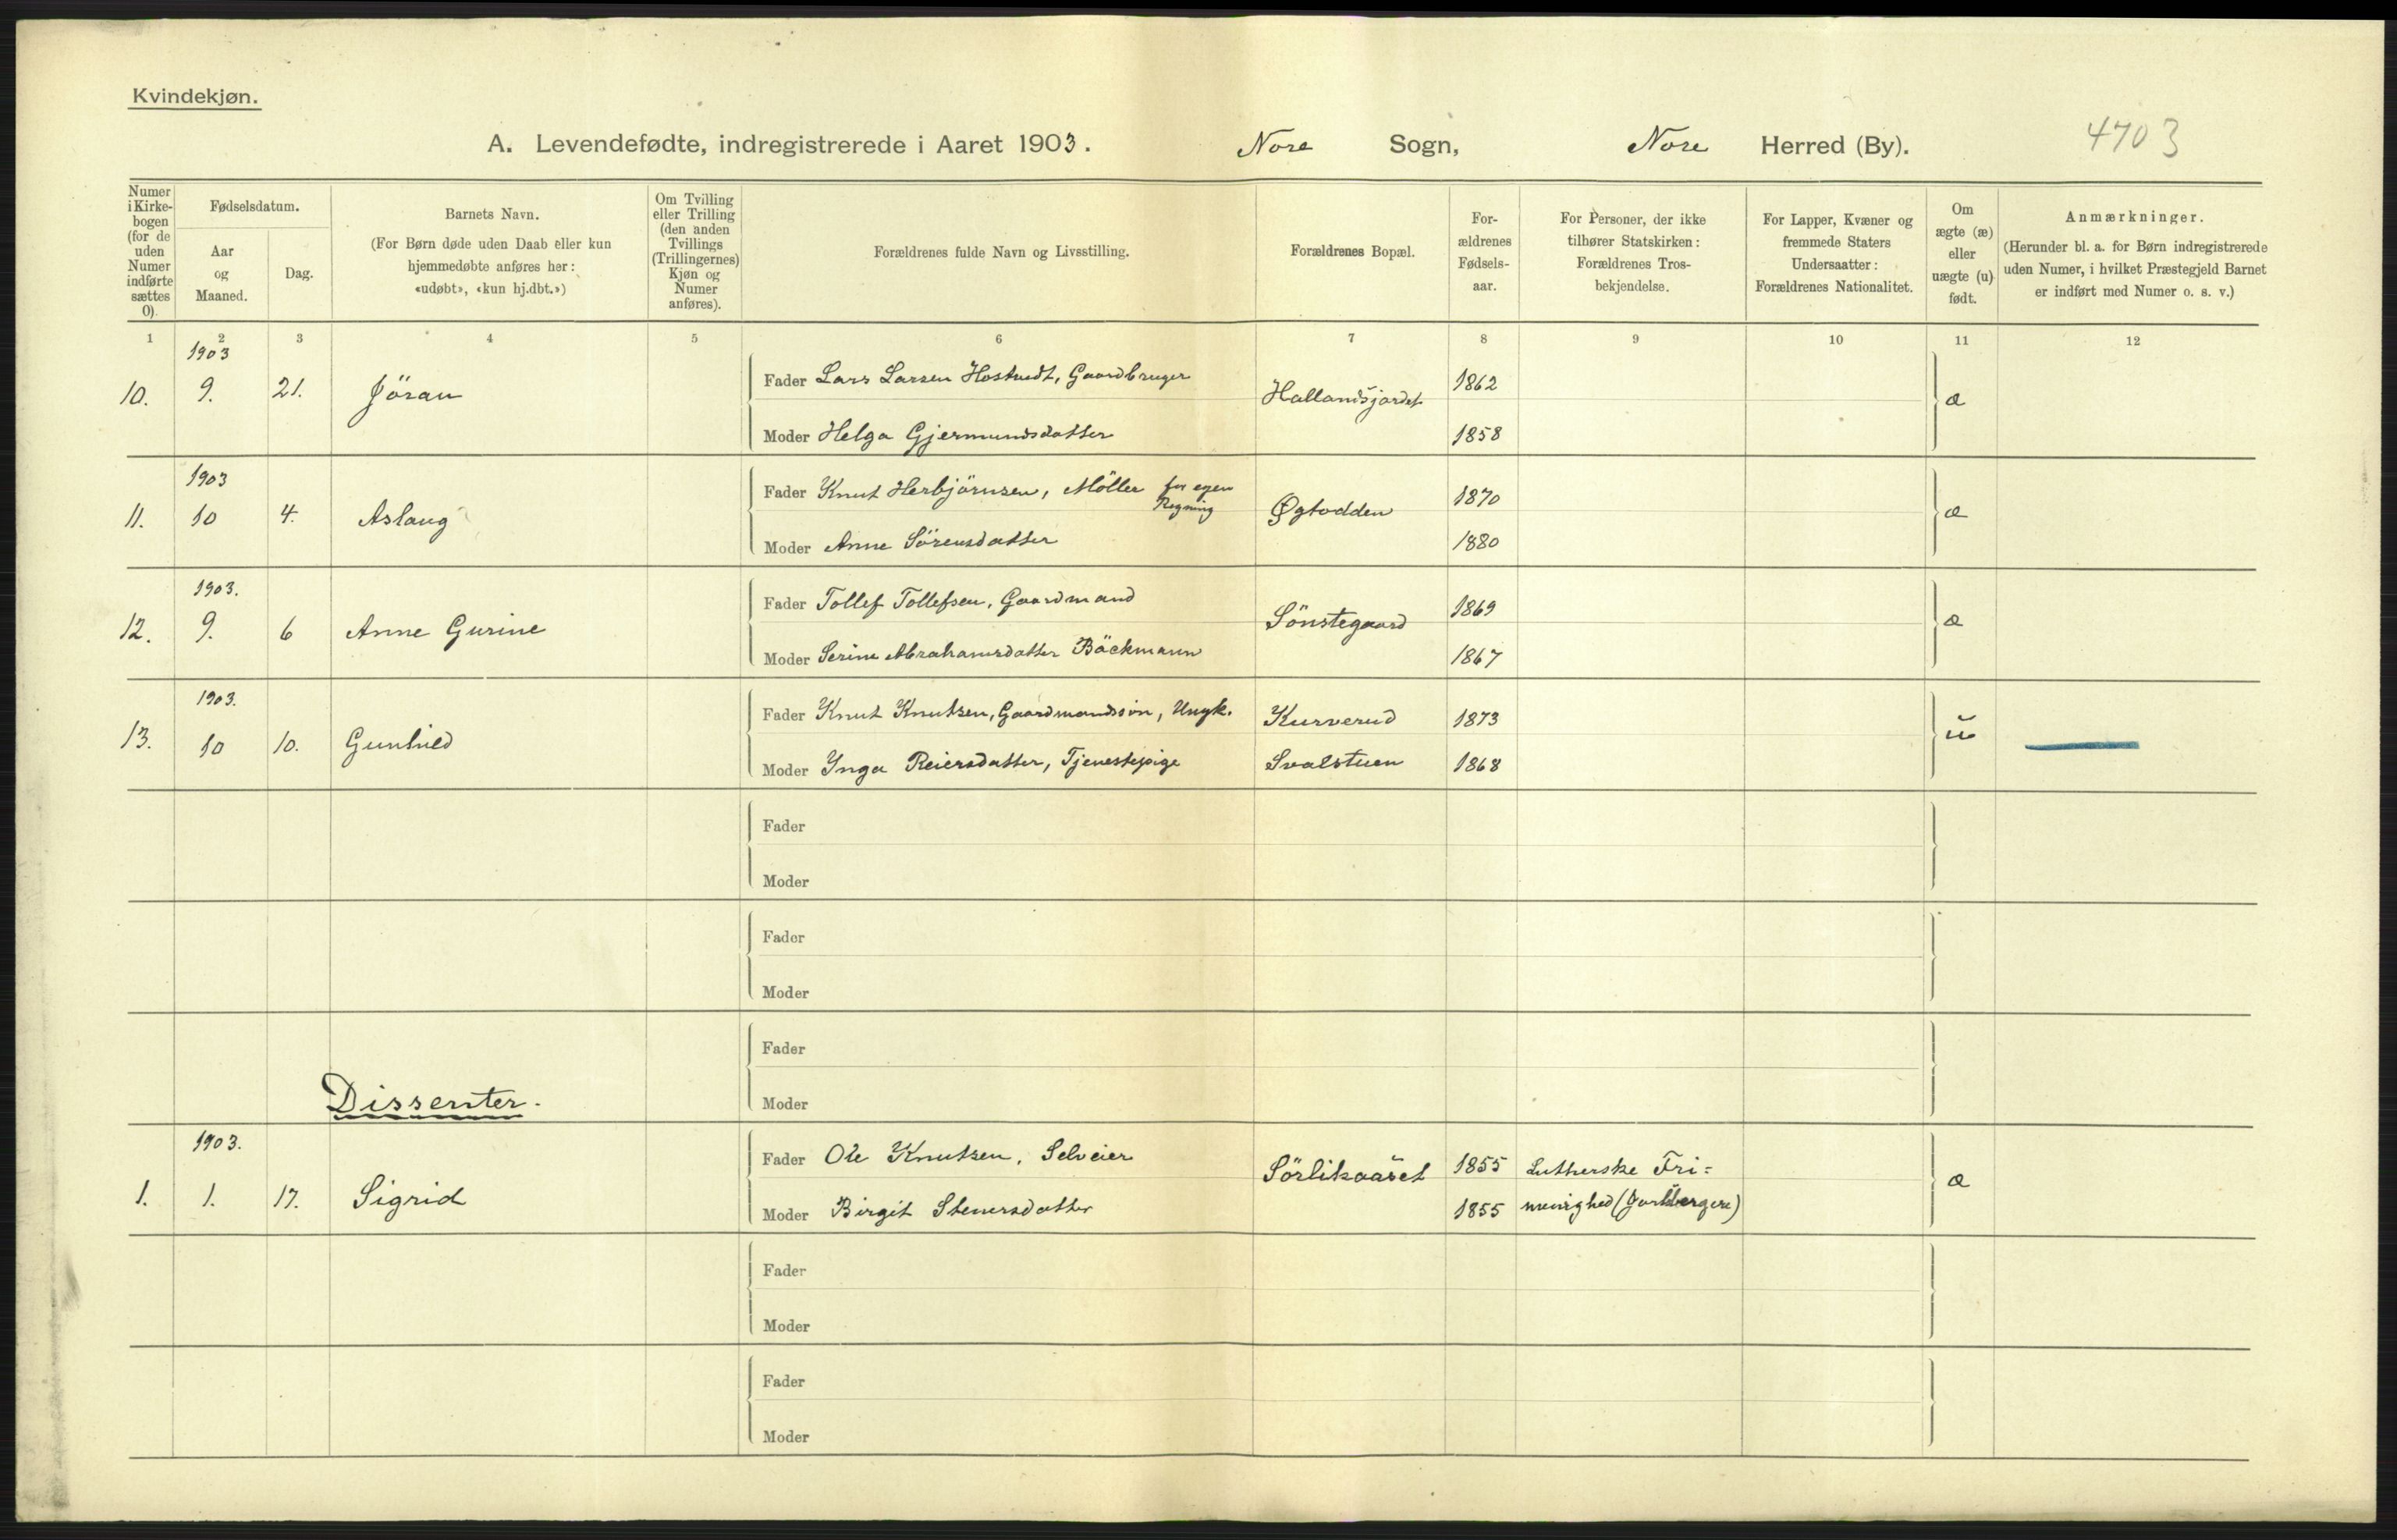 Kvindekjøn.
A. Levendefødte, indregistrerede i Aaret 1903. Nore Sogn, Nore Herred (By). 4703
Numer i Kirke-bogen (for de uden Numer indførte sættes 0).
Fødselsdatum.
Aar og Maaned.
Dag.
Barnets Navn.
(For Børn døde uden Daab eller kun hjemmedøbte anføres her: «udøbt», «kun hj.dbt.»)
Om Tvilling eller Trilling (den anden Tvillings (Trillingernes) Kjøn og Numer anføres).
Forældrenes fulde Navn og Livsstilling.
Forældrenes Bopæl.
For-ældrenes Fødsels-aar.
For Personer, der ikke tilhører Statskirken: Forældrenes Tros-bekjendelse.
For Lapper, Kvæner og fremmede Staters Undersaatter: Forældrenes Nationalitet.
Om ægte (æ) eller uægte (u) født.
Anmærkninger.
(Herunder bl. a. for Børn indregistrerede uden Numer, i hvilket Præstegjeld Barnet er indført med Numer o. s. v.)
1 2 3 4 5 6 7 8 9 10 11 12
1903
10. 9. 21. Jöran Fader Lars Larsen Hostvedt, Gaardbruger Hallandsjordet 1862 æ
Moder Helga Gjermundsdatter 1858
1903
11. 10 4. Aslaug Fader Knut Herbjörnsen, Möller for egen Regning Øgtodden 1870 æ
Moder Anne Sörensdatter 1880
1903.
12. 9. 6 Anne Gurine Fader Tollef Tollefsen, Gaardmand Sönstegaard 1869 æ
Moder Serine Abrahamsdatter Bäckmann 1867
1903.
13. 10 10. Gunhild Fader Knut Knutsen, Gaardmandssön, Ungk. Kurverud 1873 u
Moder Inga Reiersdatter, Tjenestepige Svalstuen 1868
Fader
Moder
Fader
Moder
Fader
Dissenter. Moder
1903.
1. 1. 17. Sigrid Fader Ole Knutsen, Selveier Sörlikaaset 1855 Lutherske Fri= æ
Moder Birgit Stenersdatter 1855 menighed (Jarlsbergere)
Fader
Moder
Fader
Moder